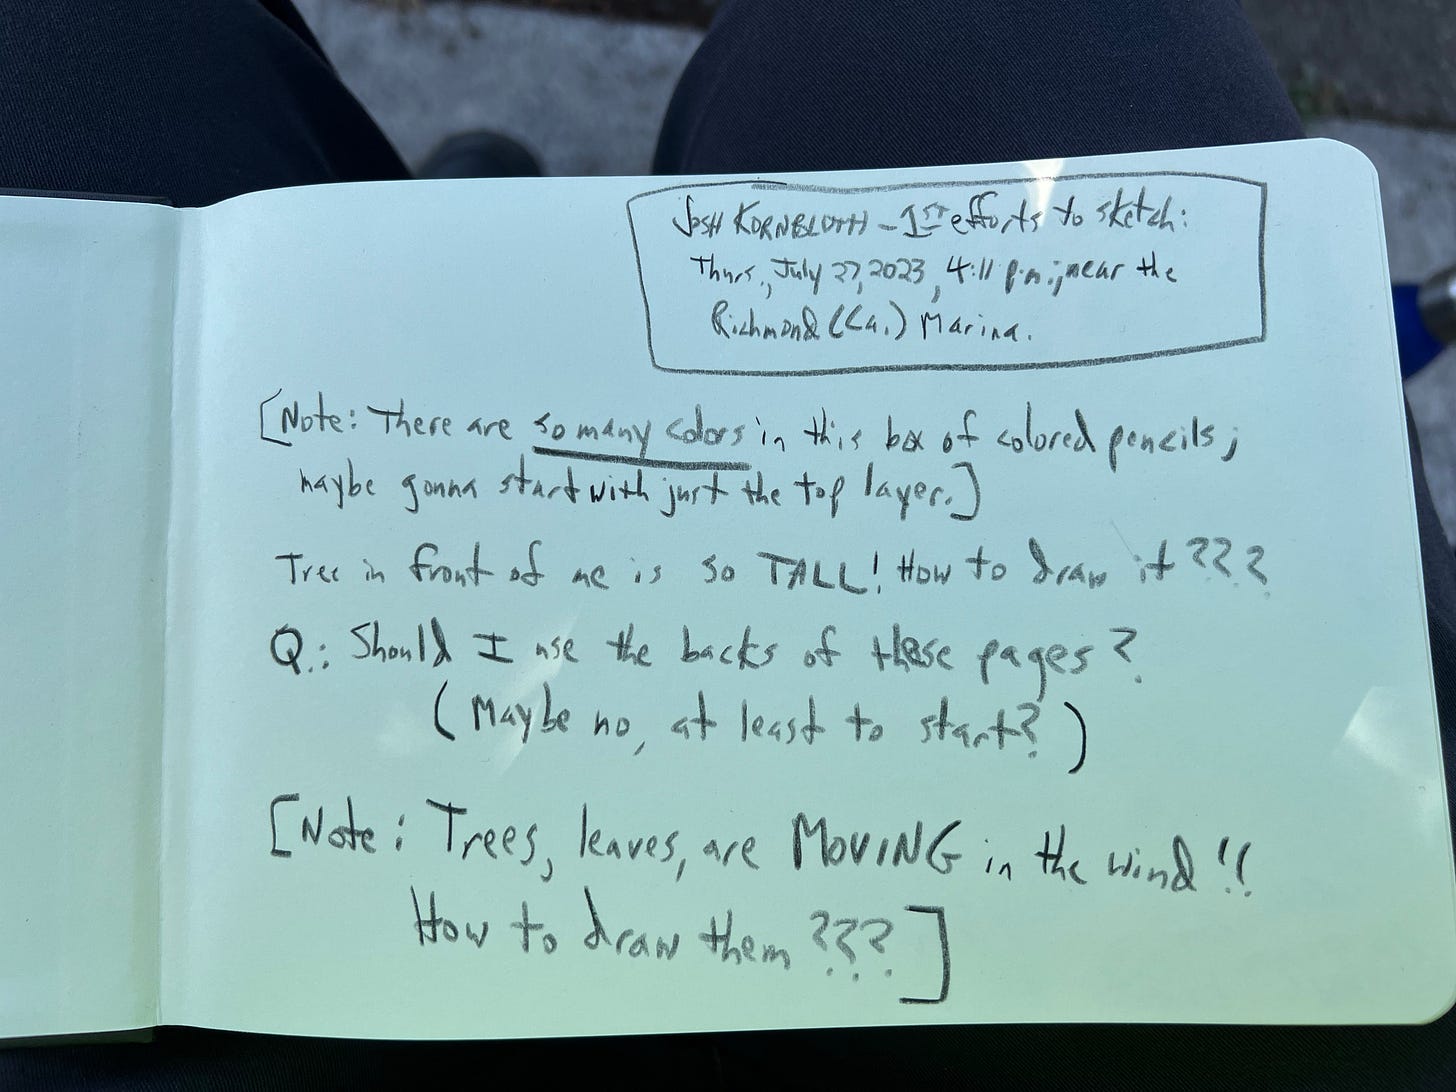 JOSH KORNBLUTH - 1ST efforts to sketch:
Thurs., July 27, 2023, 4:11 p.m.; near the
Richmond (Ca.) Marina.
[Note: There are so many colors in this box of colored pencils;
maybe gonna start with just the top layer.]
Tree in front of me is so TALL! How to draw it???
Q.: Should I use the backs of these pages?
(Maybe no, at least to start?)
[Note: Trees, leaves, are MOVING in the wind!!
How to draw them???]